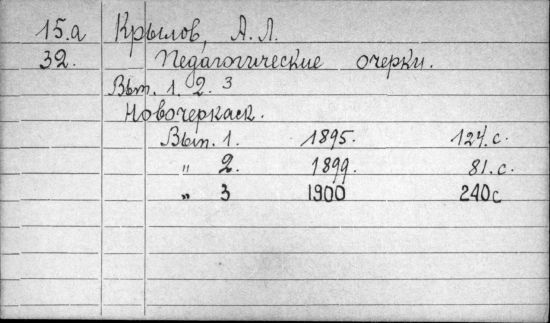 15.а Крылов, А. Л.
32. Педагогические очерки.
Вып. 1. 2. 3
Новочеркаск.
Вып. 1. 1895. 124.с.
" 2. 1899. 81.с.
" 3 1900 240с